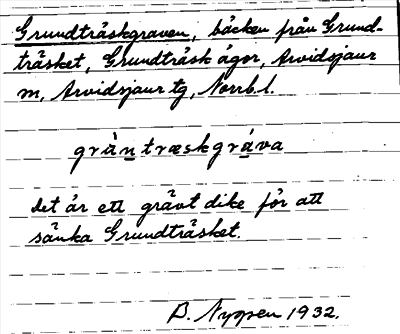 Grundträskgraven, bäcken från Grund-
träsket, Grundträsk ägor, Arvidsjaur
m, Arvidsjaur tg, Norrb.l.
gràntræskgráva
det är ett grävt dike för att
sänka Grundträsket.
1932.